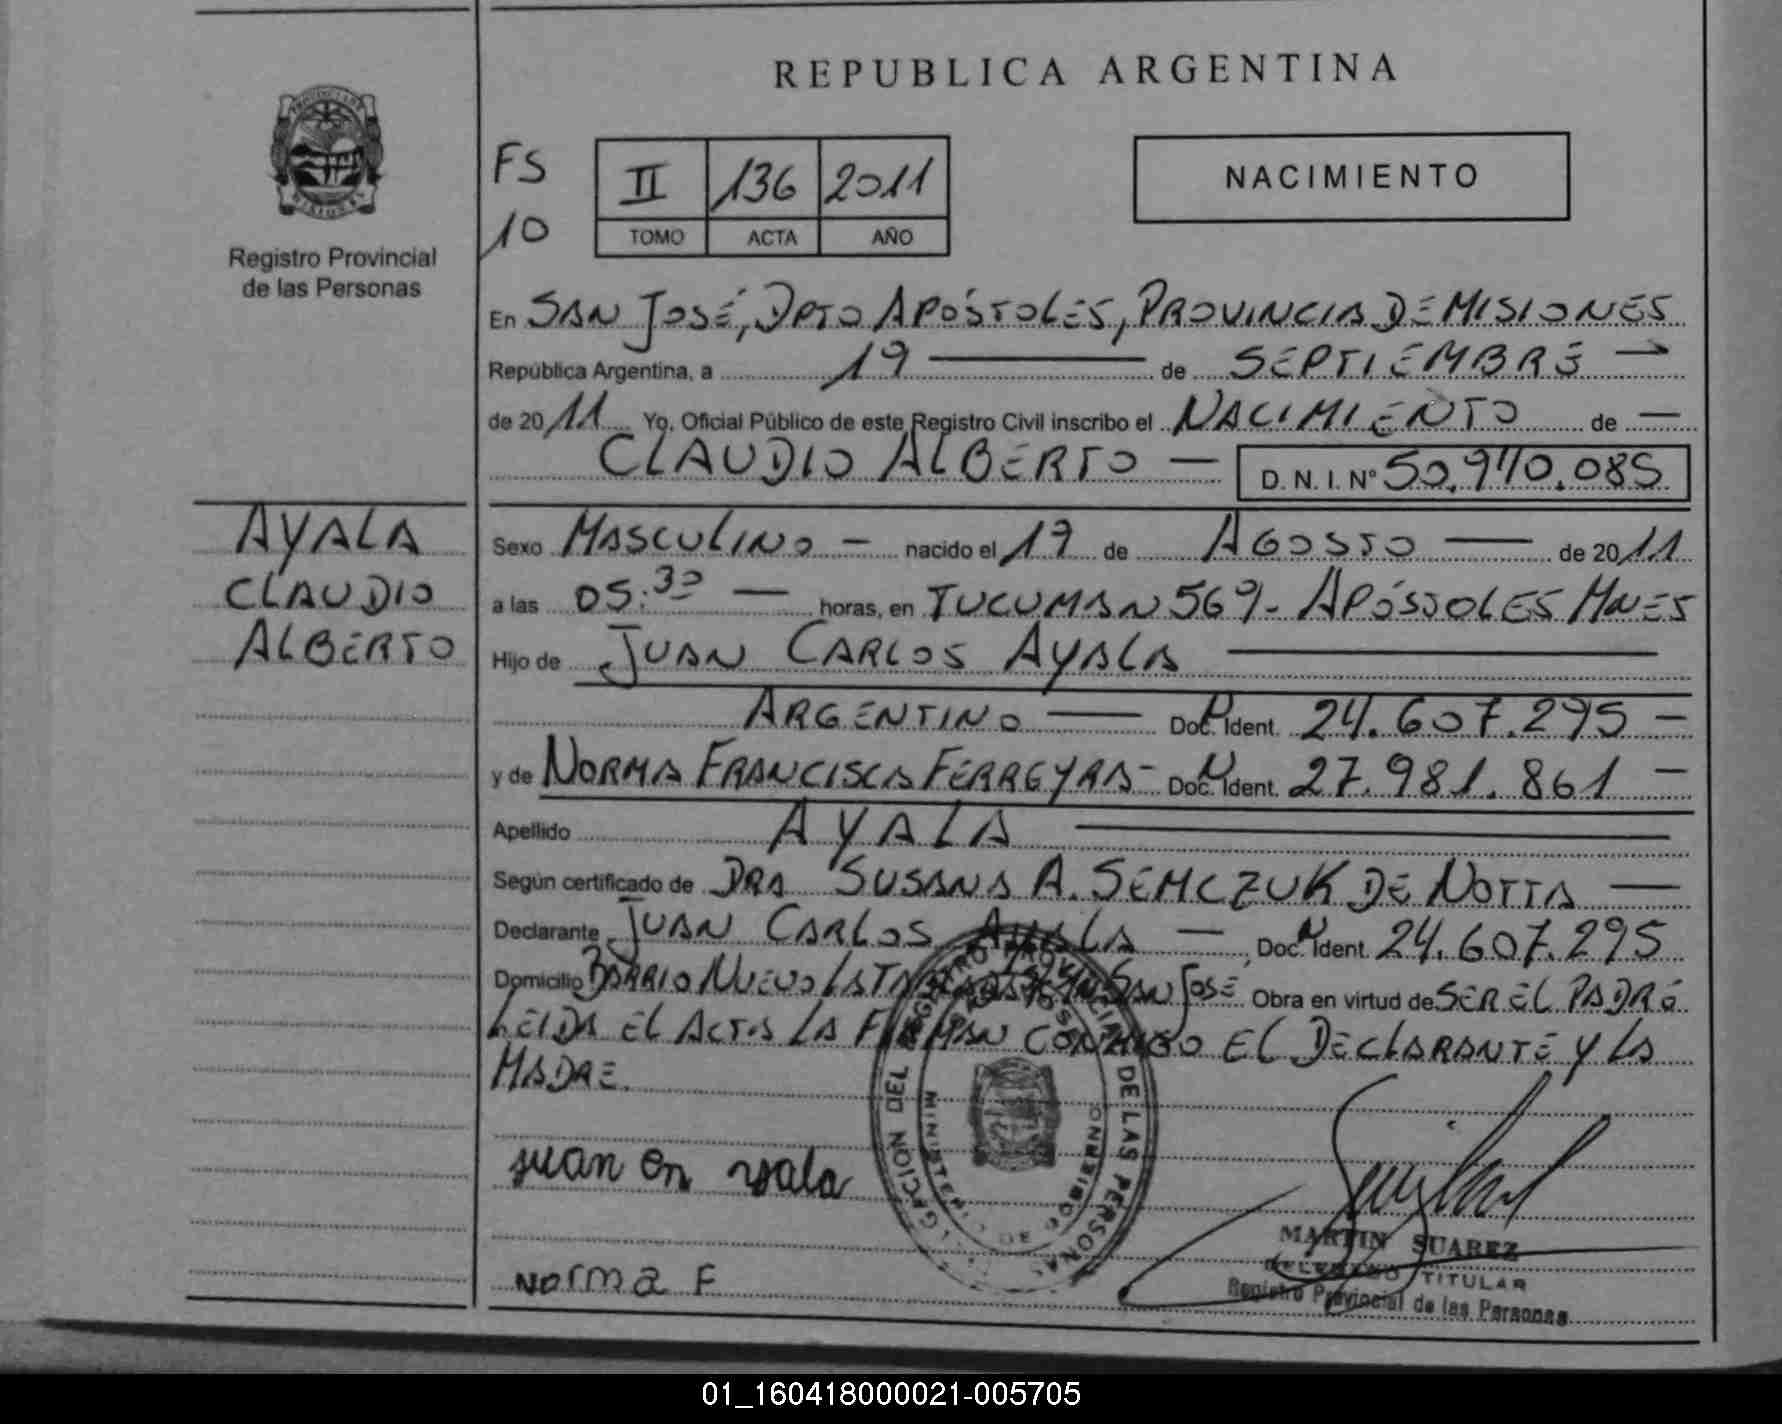 REPUBLICA ARGENTINA
PROVINCIA DE
MISIONES
Registro Provincial
de las Personas
FS
10
II 136 2011
TOMO ACTA AÑO
NACIMIENTO
En SAN JOSÉ, DPTO APÓSTOLES, PROVINCIA DE MISIONES
República Argentina, a 19 — de SEPTIEMBRE —
de 2011 Yo, Oficial Público de este Registro Civil inscribo el NACIMIENTO de —
CLAUDIO ALBERTO — D. N. I. Nº 50.970.085
AYALA
CLAUDIO
ALBERTO
Sexo MASCULINO — nacido el 19 de AGOSTO — de 2011
a las 05:30 — horas, en TUCUMAN 569- APÓSTOLES MNES
Hijo de JUAN CARLOS AYALA —
ARGENTINO — Doc. Ident. 24.607.295 —
y de NORMA FRANCISCA FERREYRA - Doc. Ident. 27.981.861 —
Apellido AYALA —
Según certificado de DRA SUSANA A. SEMCZUK DE NOTTA —
Declarante JUAN CARLOS AYALA — Doc. Ident. 24.607.295
Domicilio BARRIO NUEVO SAN JOSÉ Obra en virtud de SER EL PADRE
LEIDA EL ACTA LA FIRMAN CONMIGO EL DECLARANTE Y LA
MADRE.
DEL REGISTRO PROVINCIAL DE LAS PERSONAS
SAN JOSE
MINISTERIO DE GOBIERNO
juan ayala
Norma F
MARTIN SUAREZ
DELEGADO TITULAR
Registro Provincial de las Personas
01_160418000021-005705